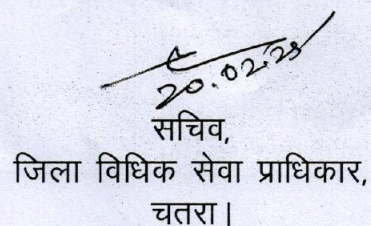 20.02.25
सचिव,
जिला विधिक सेवा प्राधिकार,
चतरा।